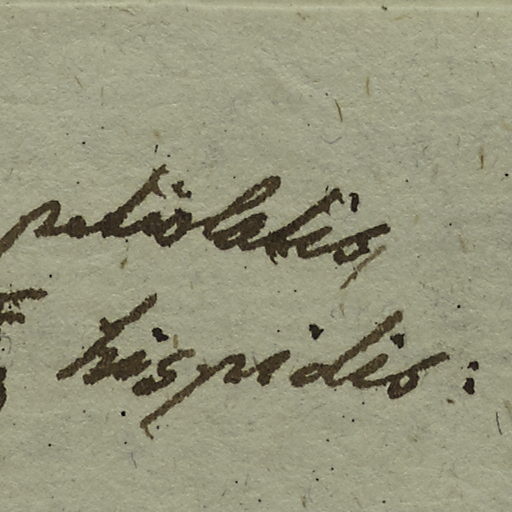 petiolatis,
hispidis: